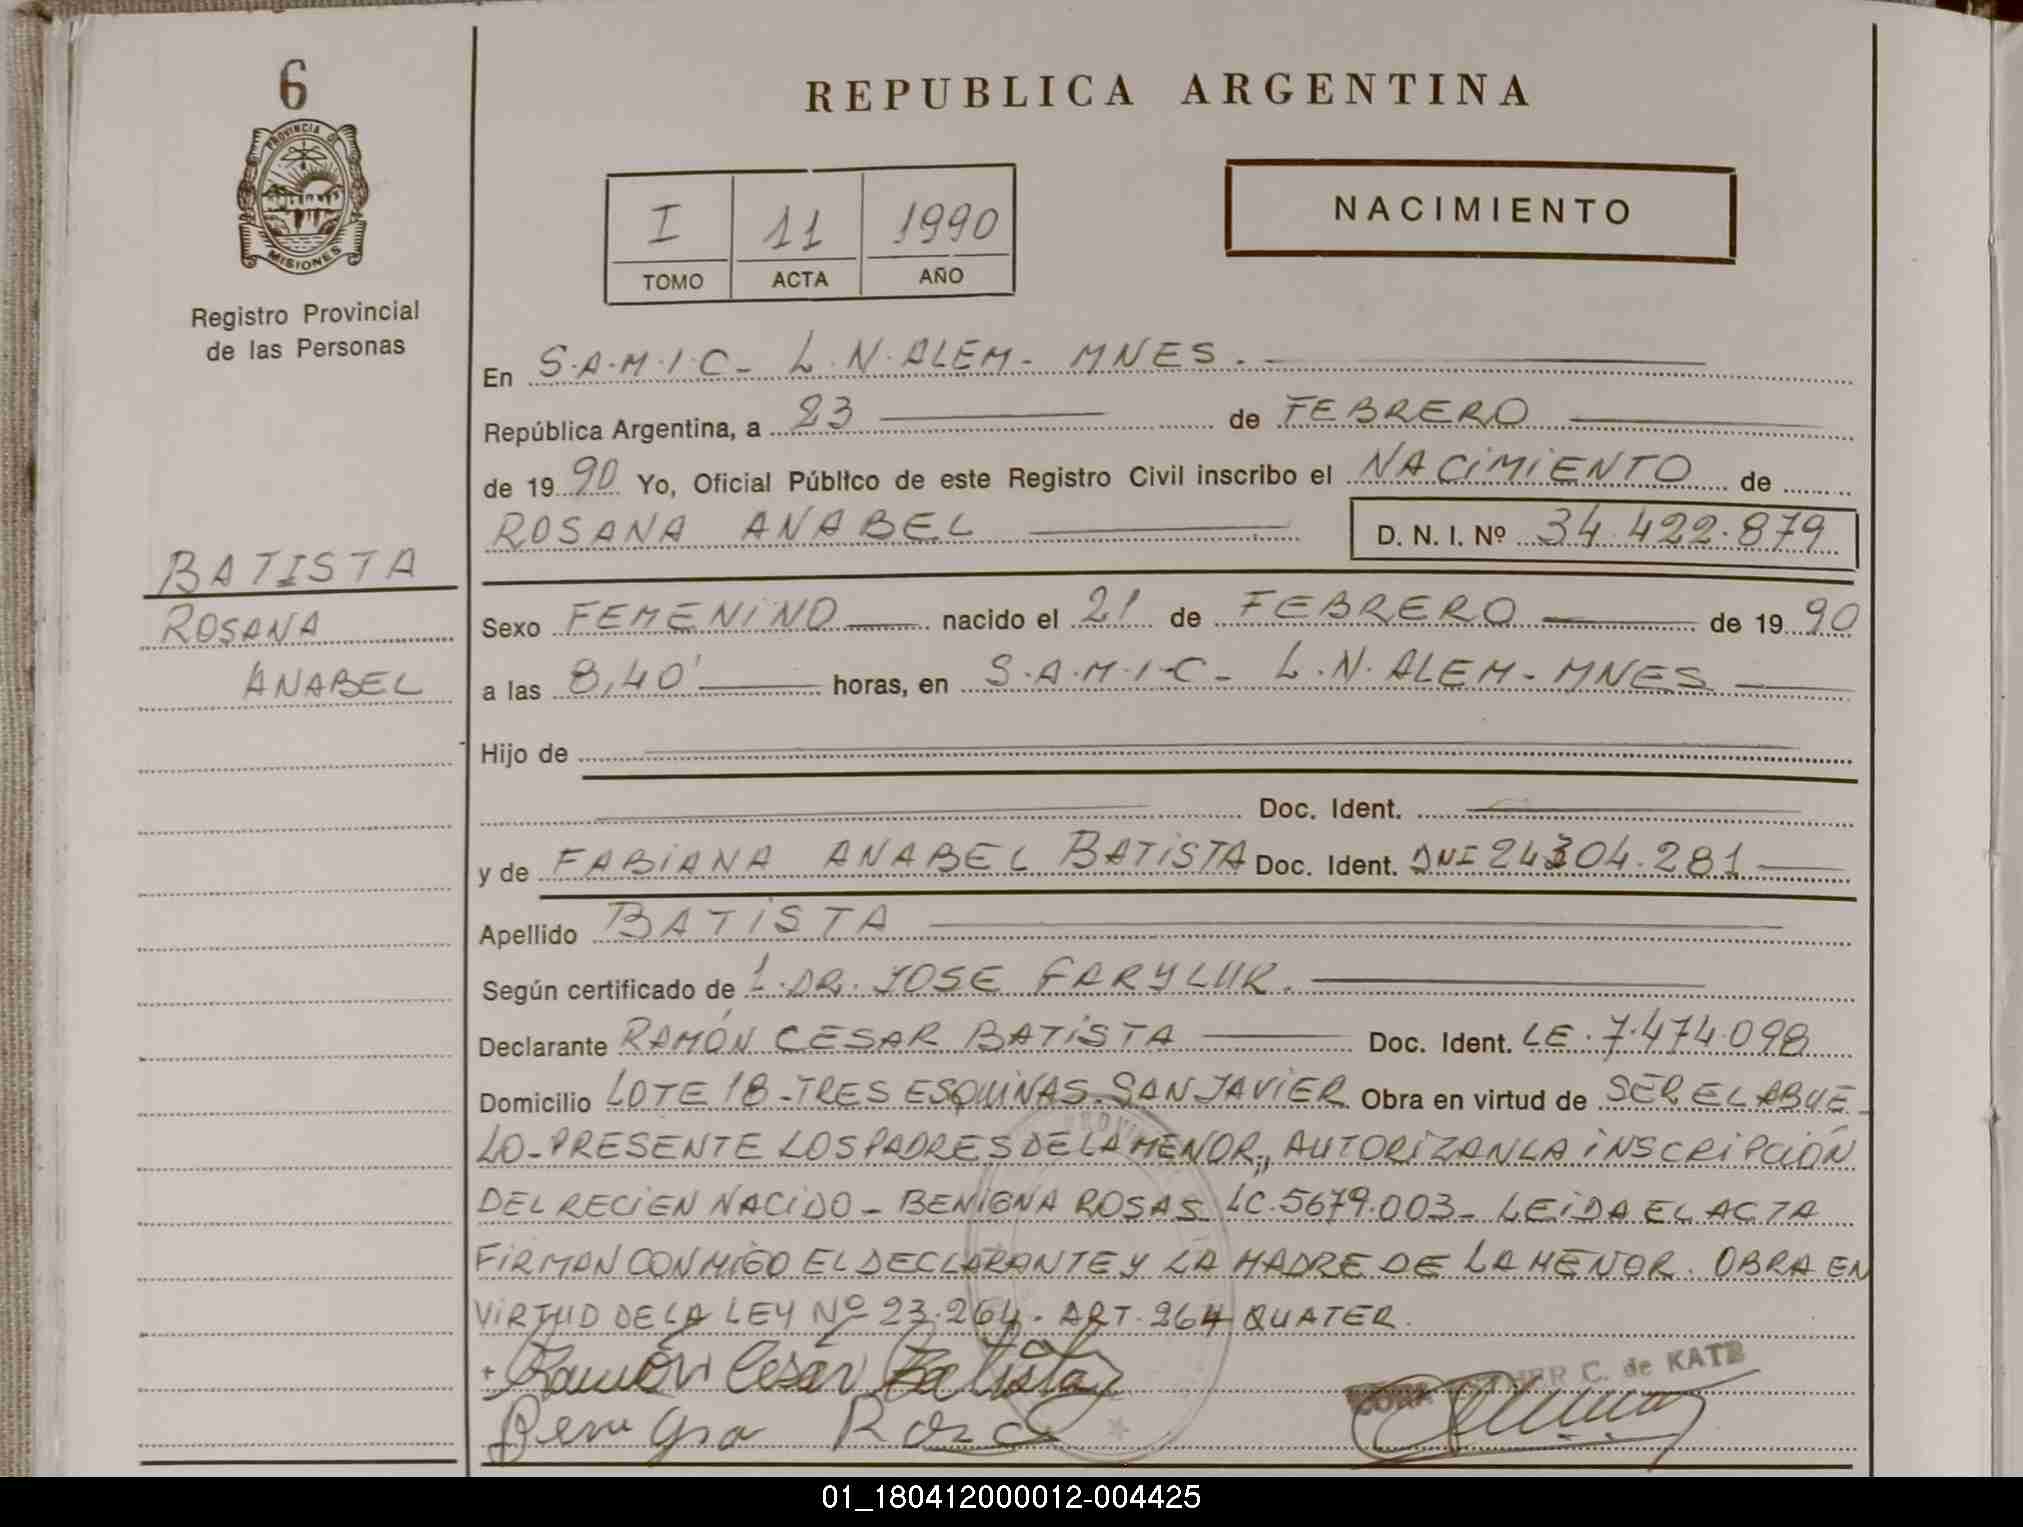 6
PROVINCIA DE
MISIONES
Registro Provincial
de las Personas
BATISTA
ROSANA
ANABEL
REPUBLICA ARGENTINA
I 11 1990
TOMO ACTA AÑO
NACIMIENTO
En S.A.M.I.C - L.N. ALEM - MNES.
República Argentina, a 23 de FEBRERO
de 1990 Yo, Oficial Público de este Registro Civil inscribo el NACIMIENTO de
ROSANA ANABEL D. N. I. Nº 34.422.879
Sexo FEMENINO nacido el 21 de FEBRERO de 1990
a las 8,40' horas, en S.A.M.I.C - L.N. ALEM - MNES
Hijo de
Doc. Ident.
y de FABIANA ANABEL BATISTA Doc. Ident. DNI 24304.281
Apellido BATISTA
Según certificado de 1. DR. JOSE FARYLUK.
Declarante RAMÓN CESAR BATISTA Doc. Ident. LE. 7.474.098
Domicilio LOTE 18 - TRES ESQUINAS - SAN JAVIER Obra en virtud de SER EL ABUE-
LO - PRESENTE LOS PADRES DE LA MENOR, AUTORIZAN LA INSCRIPCIÓN
DEL RECIEN NACIDO - BENIGNA ROSAS LC. 5679.003 - LEIDA EL ACTA
FIRMAN CONMIGO EL DECLARANTE Y LA MADRE DE LA MENOR. OBRA EN
VIRTUD DE LA LEY Nº 23.264. ART. 264 QUATER.
Ramón Cesar Batista
C. de KATZ
Benigna Rosa
01_180412000012-004425